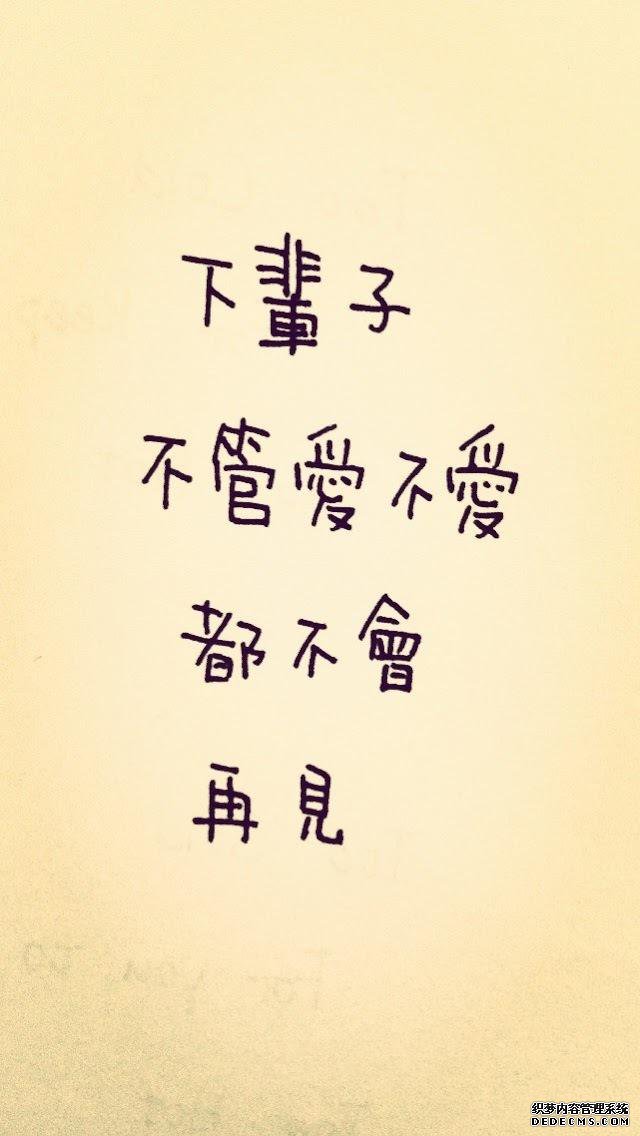 下輩子
不管愛不愛
都不會
再見
织梦内容管理系统
DEDECMS.COM